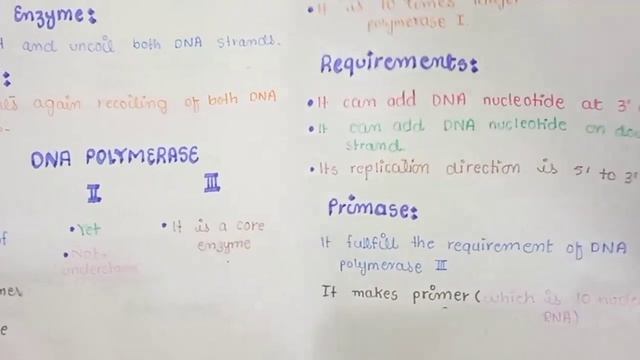 Enzyme:
and uncoil both DNA strands.
:
again recoiling of both DNA
DNA POLYMERASE
II
III
• Yet
• Not
understand
• It is a core
enzyme
of
• It is 10 times longer
polymerase I.
Requirements:
• It can add DNA nucleotide at 3'
• It can add DNA nucleotide on
strand
• Its replication direction is 5' to 3'
Primase:
It fulfill the requirement of DNA
polymerase III
It makes primer (which is 10
RNA)